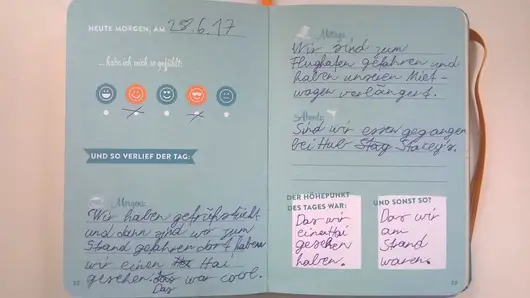 HEUTE MORGEN, AM 28.6.17
... habe ich mich so gefühlt:
UND SO VERLIEF DER TAG:
Morgens
Wir haben gefrühstückt
und dann sind wir zum
Stand gefahren dort haben
wir einen Hai
gesehen. Das war cool.
22
Mittags
Wir sind zum
Flughafen gefahren und
haben unseren Miet-
wagen verlängert.
Abends
Sind wir essen gegangen
bei Hub Stacey's.
DER HÖHEPUNKT
DES TAGES WAR:
Das wir
einen Hai
gesehen
haben.
UND SONST SO?
Das wir
am
Stand
waren.
23